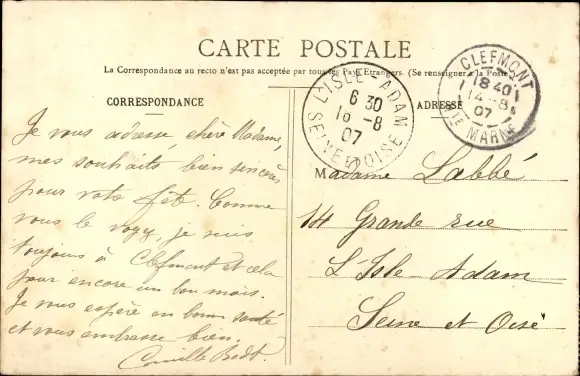 CARTE POSTALE
La Correspondance au recto n'est pas acceptée par tous les Pays Etrangers. (Se renseigner à la Poste.)
CORRESPONDANCE
ADRESSE
L'ISLE-ADAM
6 30
16 -8
07
SEINE ET OISE
CLEFMONT
18 40
14 -8
07
HTE MARNE
Je vous adresse, chère Madame,
mes souhaits bien sincères
pour votre fête. Comme
vous le voyez, je suis
toujours à Clefmont et cela
pour encore un bon mois.
Je vous espère en bonne santé
et vous embrasse bien.
Camille
Madame Labbé
14 Grande rue
L'Isle Adam
Seine et Oise